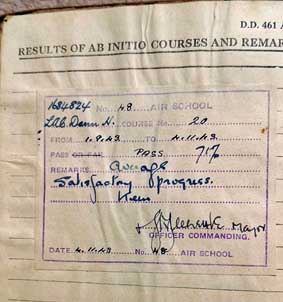 D.D. 461
RESULTS OF AB INITIO COURSES AND REMAR
1684824 No 48 AIR SCHOOL
LAC Dann H. COURSE No 20
FROM 1.9.43 TO 4.11.43
PASS OR FAIL PASS 71%
REMARKS Average
Satisfactory progress.
Keen
Major
OFFICER COMMANDING.
DATE 4.11.43 No 48 AIR SCHOOL